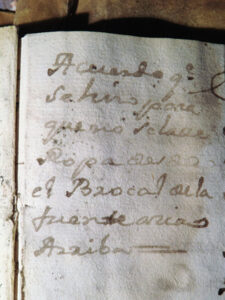 Acuerdo q.e
se hizo para
que no se lave
Ropa desde
el Brocal de la
fuente acia
Arriba